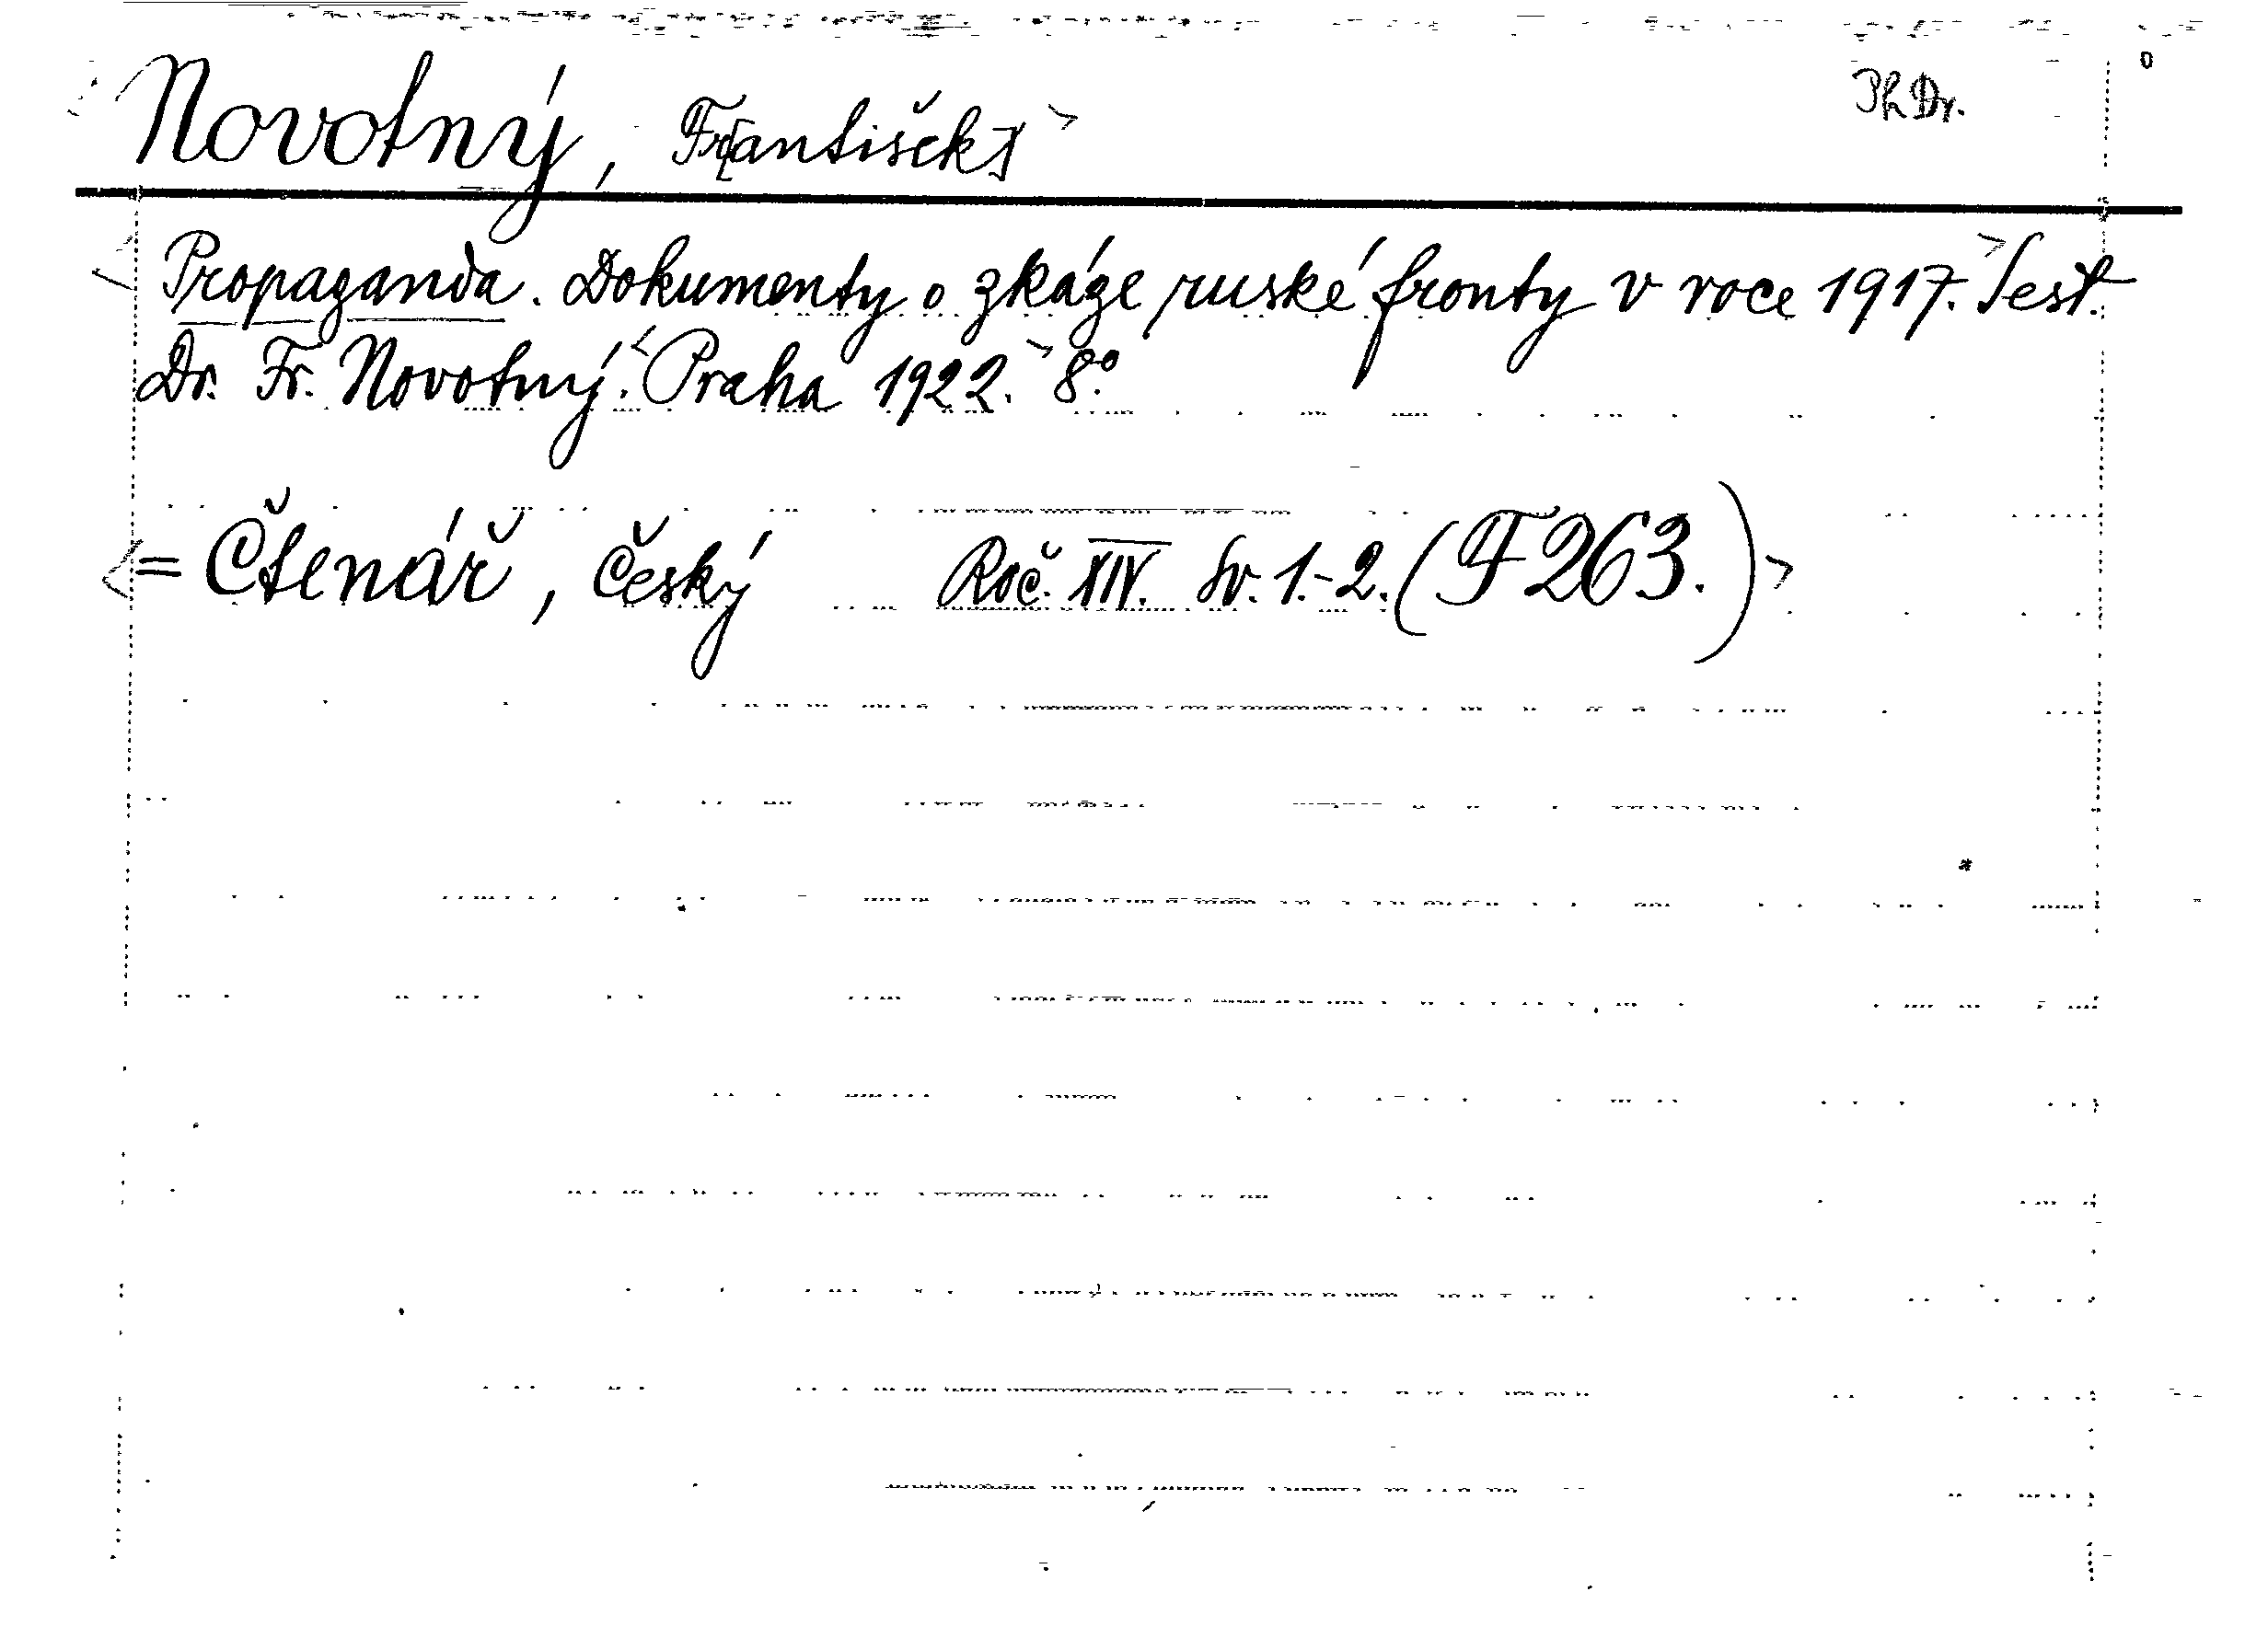 Novotný, Fr[antišek] PhDr.
Propaganda. Dokumenty o zkáze ruské fronty v roce 1917. Sest.
Dr. Fr. Novotný. Praha 1922. 8°
= Čtenář, český Roč. XIV. Sv. 1.-2. (F 263.)